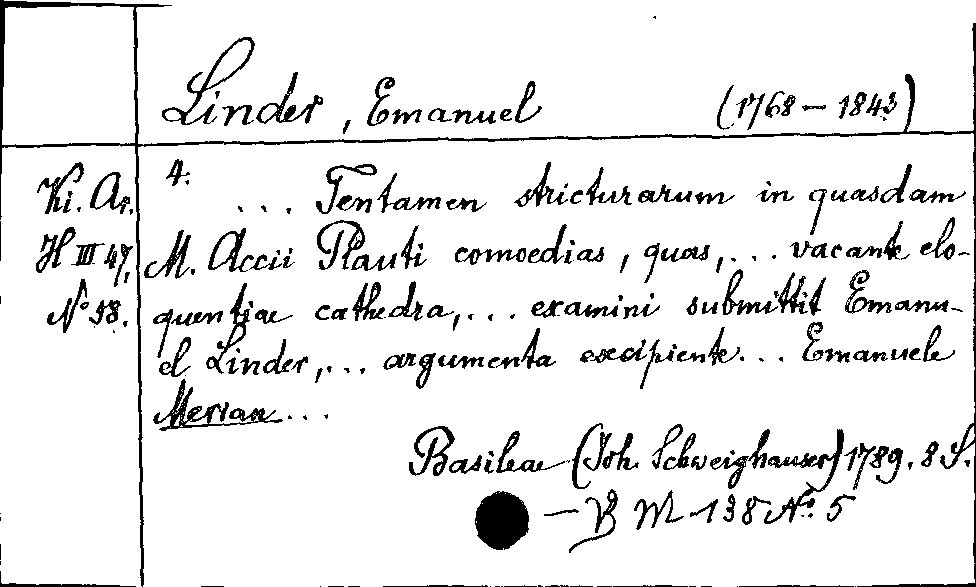 Linder, Emanuel (1768 – 1843)
Ki. Ar.
H III 47,
No 58.
4.
... Tentamen stricturarum in quasdam
M. Accii Plauti comoedias, quas, ... vacante elo-
quentiae cathedra, ... examini submittit Emanu-
el Linder, ... argumenta excipiente ... Emanuele
Merian ...
Basileae (Joh. Schweighauser) 1789. 8 S.
— M 138 No. 5